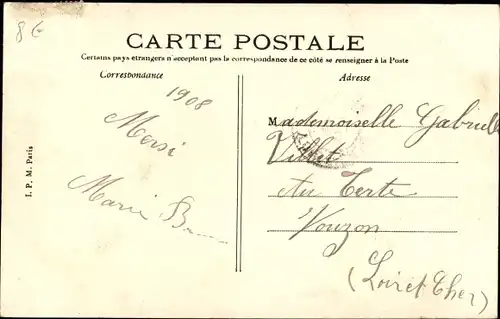 8€
CARTE POSTALE
Certains pays étrangers n'acceptant pas la correspondance de ce côté se renseigner à la Poste
Correspondance
Adresse
1908
Mersi
Marie
I. P. M. Paris
Mademoiselle Gabrielle
Villet
Au Tertre
Vouzon
(Loir et Cher)